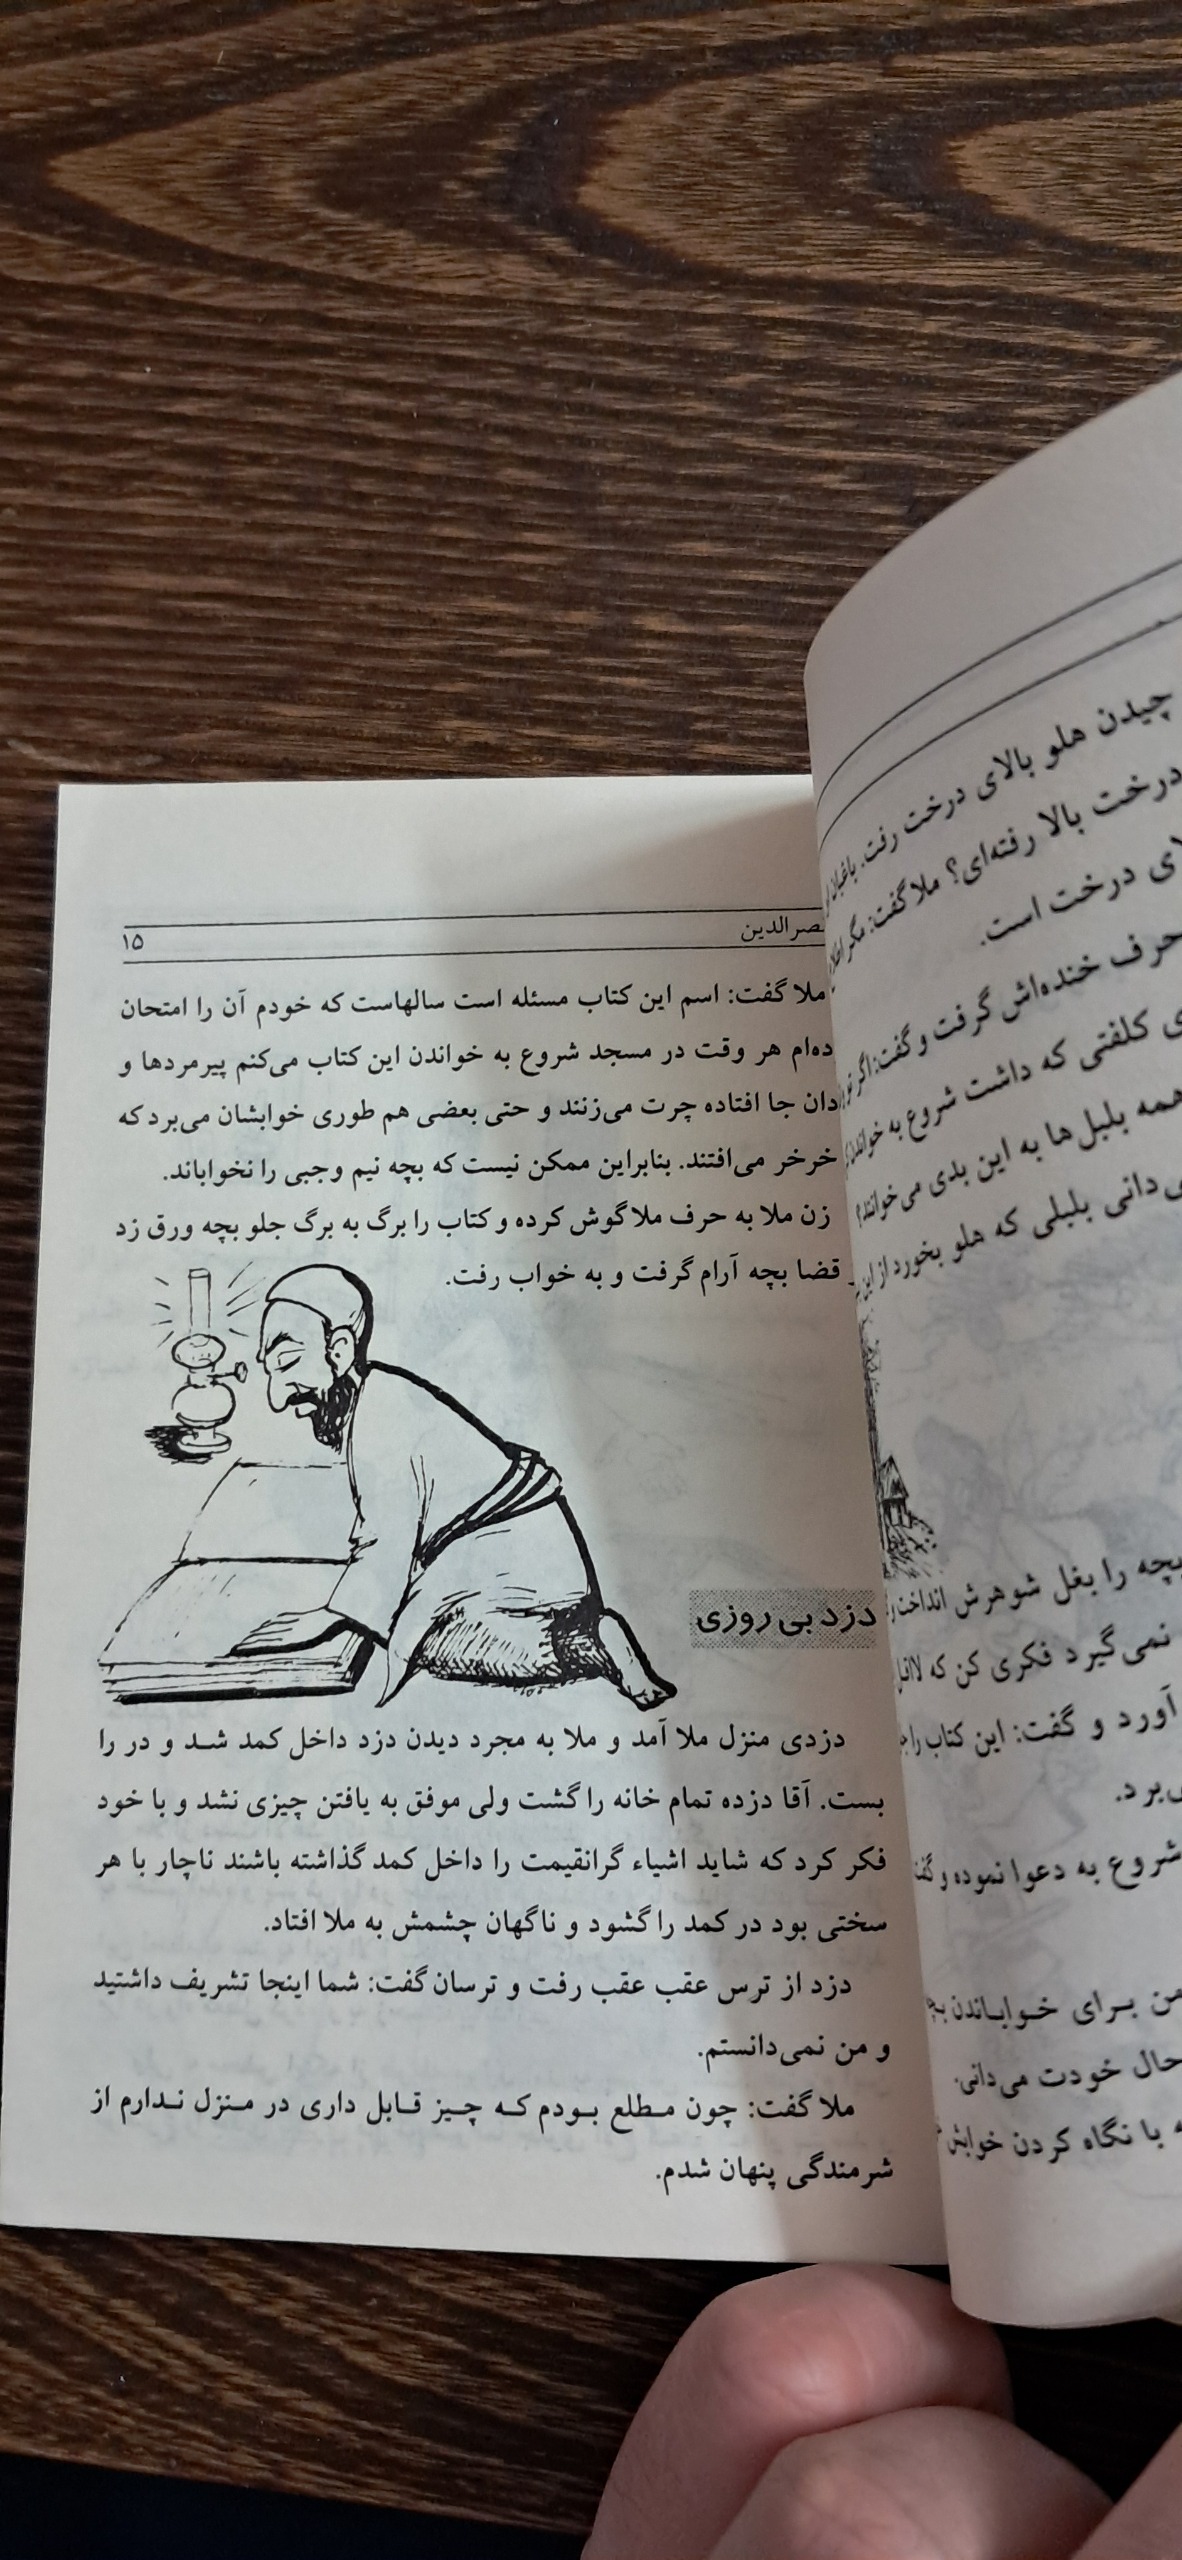 چیدن هلو بالای درخت رفت. باغبان
درخت بالا رفته‌ای؟ ملا گفت: مگر
درخت است.
حرف خنده‌اش گرفت و گفت: اگر تو
کلفتی که داشت شروع به
همه بلبل ها به این بدی می‌خوانند؟
دانی بلبلی که هلو بخورد از این
بچه را بغل شوهرش انداخت
نمی‌گیرد فکری کن که لااقل
آورد و گفت: این کتاب را
برد.
شروع به دعوا نموده و
من بـرای خـوابـاندن
حال خودت می‌دانی.
با نگاه کردن خوابش
۱۵
صرالدین
ملا گفت: اسم این کتاب مسئله است سالهاست که خودم آن را امتحان
ده‌ام هر وقت در مسجد شروع به خواندن این کتاب می‌کنم پیرمردها و
دان جا افتاده چرت می‌زنند و حتی بعضی هم طوری خوابشان می‌برد که
خرخر می‌افتند. بنابراین ممکن نیست که بچه نیم وجبی را نخواباند.
زن ملا به حرف ملا گوش کرده و کتاب را برگ به برگ جلو بچه ورق زد
قضا بچه آرام گرفت و به خواب رفت.
دزد بی روزی
دزدی منزل ملا آمد و ملا به مجرد دیدن دزد داخل کمد شـد و در را
بست. آقا دزده تمام خانه را گشت ولی موفق به یافتن چیزی نشد و با خود
فکر کرد که شاید اشیاء گرانقیمت را داخل کمد گذاشته باشند ناچار با هر
سختی بود در کمد را گشود و ناگهان چشمش به ملا افتاد.
دزد از ترس عقب عقب رفت و ترسان گفت: شما اینجا تشریف داشتید
و من نمی‌دانستم.
ملا گفت: چون مـطلع بـودم کـه چـیز قـابل داری در مـنزل نـدارم از
شرمندگی پنهان شدم.